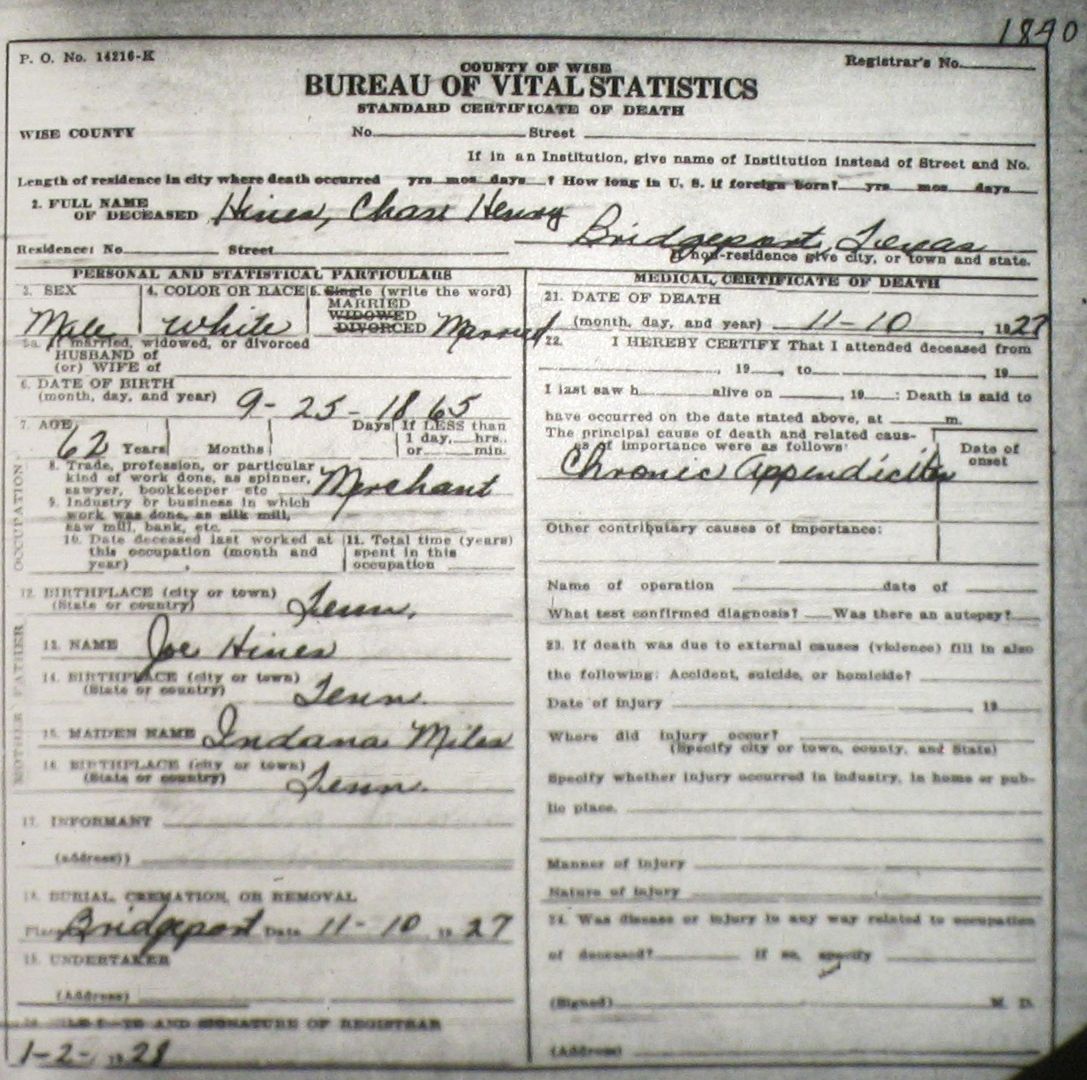 1840
P. O. No. 14216-K
Registrar's No.
COUNTY OF WISE
BUREAU OF VITAL STATISTICS
STANDARD CERTIFICATE OF DEATH
WISE COUNTY No. Street
If in an Institution, give name of Institution instead of Street and No.
Length of residence in city where death occurred yrs mos days ? How long in U. S. if foreign born? yrs mos days
2. FULL NAME
OF DECEASED Hines, Chase Henry
Residence: No. Street Bridgeport, Texas
If non-residence give city, or town and state.
PERSONAL AND STATISTICAL PARTICULARS
3. SEX
Male
4. COLOR OR RACE
White
5. Single (write the word)
MARRIED
WIDOWED
DIVORCED Married
5a. If married, widowed, or divorced
HUSBAND of
(or) WIFE of
6. DATE OF BIRTH
(month, day, and year) 9-25-1865
7. AGE
62 Years Months Days If LESS than
1 day, hrs.
or min.
OCCUPATION
8. Trade, profession, or particular
kind of work done, as spinner,
sawyer, bookkeeper etc Merchant
9. Industry or business in which
work was done, as silk mill,
saw mill, bank, etc.
10. Date deceased last worked at
this occupation (month and
year)
11. Total time (years)
spent in this
occupation
12. BIRTHPLACE (city or town)
(State or country) Tenn.
FATHER
13. NAME Joe Hines
14. BIRTHPLACE (city or town)
(State or country) Tenn.
MOTHER
15. MAIDEN NAME Indana Miles
16. BIRTHPLACE (city or town)
(State or country) Tenn.
17. INFORMANT
(address))
18. BURIAL, CREMATION, OR REMOVAL
Place Bridgeport Date 11-10 1927
19. UNDERTAKER
(Address)
20. FILE DATE AND SIGNATURE OF REGISTRAR
1-2- 1928
MEDICAL CERTIFICATE OF DEATH
21. DATE OF DEATH
(month, day, and year) 11-10 1927
22. I HEREBY CERTIFY That I attended deceased from
, 19 , to , 19
I last saw h alive on , 19 : Death is said to
have occurred on the date stated above, at m.
The principal cause of death and related caus-
es of importance were as follows:
Date of
onset
Chronic Appendicites
Other contributary causes of importance:
Name of operation date of
What test confirmed diagnosis? Was there an autopsy?
23. If death was due to external causes (violence) fill in also
the following: Accident, suicide, or homicide?
Date of injury 19
Where did injury occur?
(Specify city or town, county, and State)
Specify whether injury occurred in industry, in home or pub-
lic place.
Manner of injury
Nature of injury
24. Was disease or injury in any way related to occupation
of deceased? If so, specify
(Signed) M. D.
(Address)